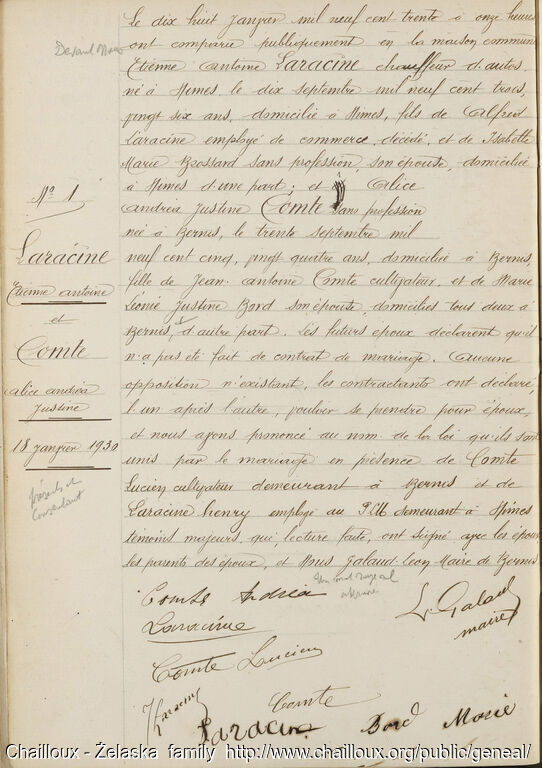 Le dix huit Janvier mil neuf cent trente à onze heures
ont comparu publiquement en la maison commune
Etienne antoine Laracine chauffeur d'autos
né à Nimes, le dix septembre mil neuf cent trois,
vingt six ans, domicilié à Nimes, fils de Alfred
Laracine employé de commerce, décédé, et de Isabelle
Marie Brossard sans profession, son épouse, domiciliée
à Nimes d'une part; et Alice
Andréa Justine Comte sans profession
née à Bernis, le trente septembre mil
neuf cent cinq, vingt quatre ans, domiciliée à Bernis,
fille de Jean antoine Comte cultivateur, et de Marie
Léonie Justine Bord son épouse, domiciliés tous deux à
Bernis, d'autre part. Les futurs époux déclarent qu'il
n'a pas été fait de contrat de mariage. Aucune
opposition n'existant, les contractants ont déclaré,
l'un après l'autre, vouloir se prendre pour époux,
et nous avons prononcé au nom de la loi qu'ils sont
unis par le mariage en présence de Comte
Lucien cultivateur demeurant à Bernis et de
Laracine henry employé au P.L.M demeurant à Nimes
témoins majeurs, qui, lecture faite, ont signé avec les époux
les parents des époux, et Nous Galaud Léon Maire de Bernis
Nº 1
Laracine
Etienne antoine
et
Comte
alice andréa
Justine
18 janvier 1930
Un mot rayé nul
Comte Andréa
L. Galaud
maire
Laracine
Comte Lucien
Comte
Laracine
Bord Marie
Chailloux - Żelaska family http://www.chailloux.org/public/geneal/